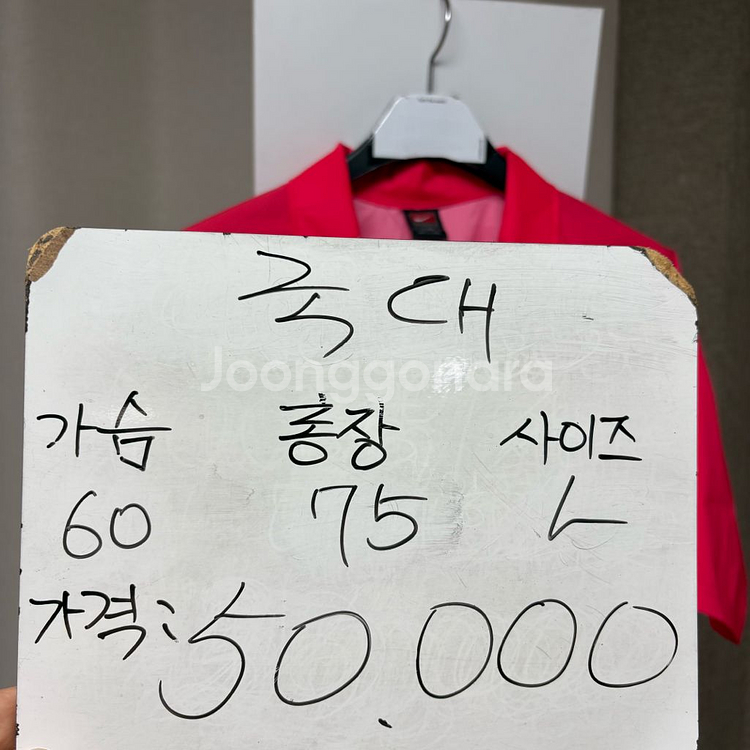 국대
Joonggonara
가슴 총장 사이즈
60 75 L
가격: 50.000